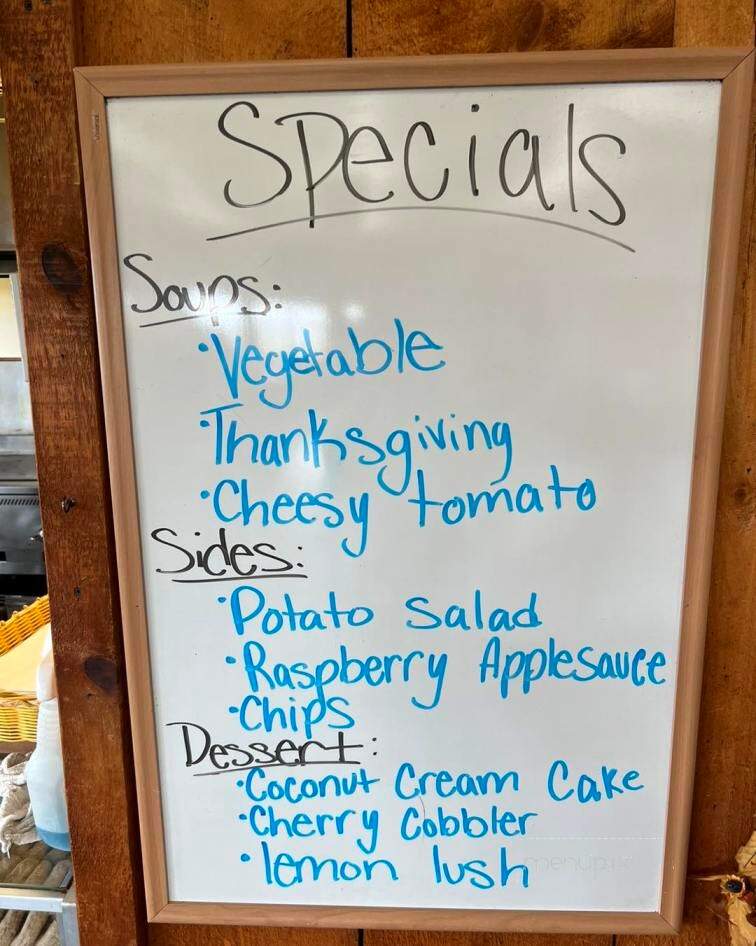 Specials
Soups:
·Vegetable
·Thanksgiving
·Cheesy tomato
Sides:
·Potato Salad
·Raspberry Applesauce
·Chips
Dessert:
·Coconut Cream Cake
·Cherry Cobbler
·lemon lush